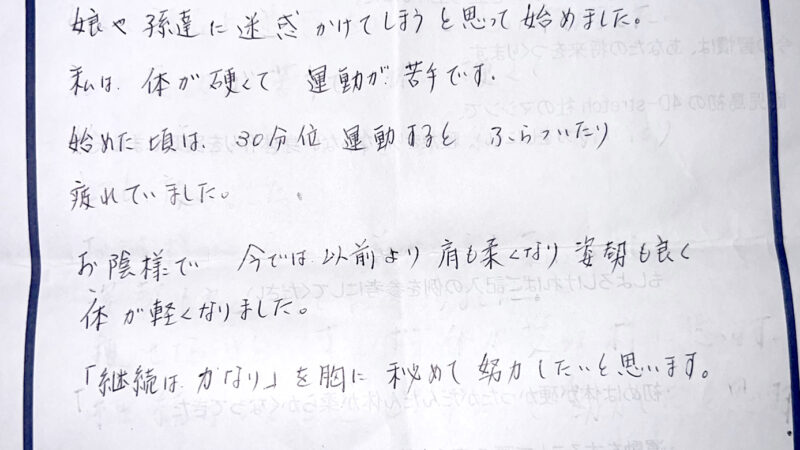 娘や孫達に迷惑かけてしまうと思って始めました。
私は、体が硬くて 運動が苦手です。
始めた頃は、30分位 運動すると ふらついたり
疲れていました。
お陰様で 今では、以前より 肩も柔くなり 姿勢も良く
体が軽くなりました。
「継続は、力なり」を胸に 秘めて 努力したいと思います。